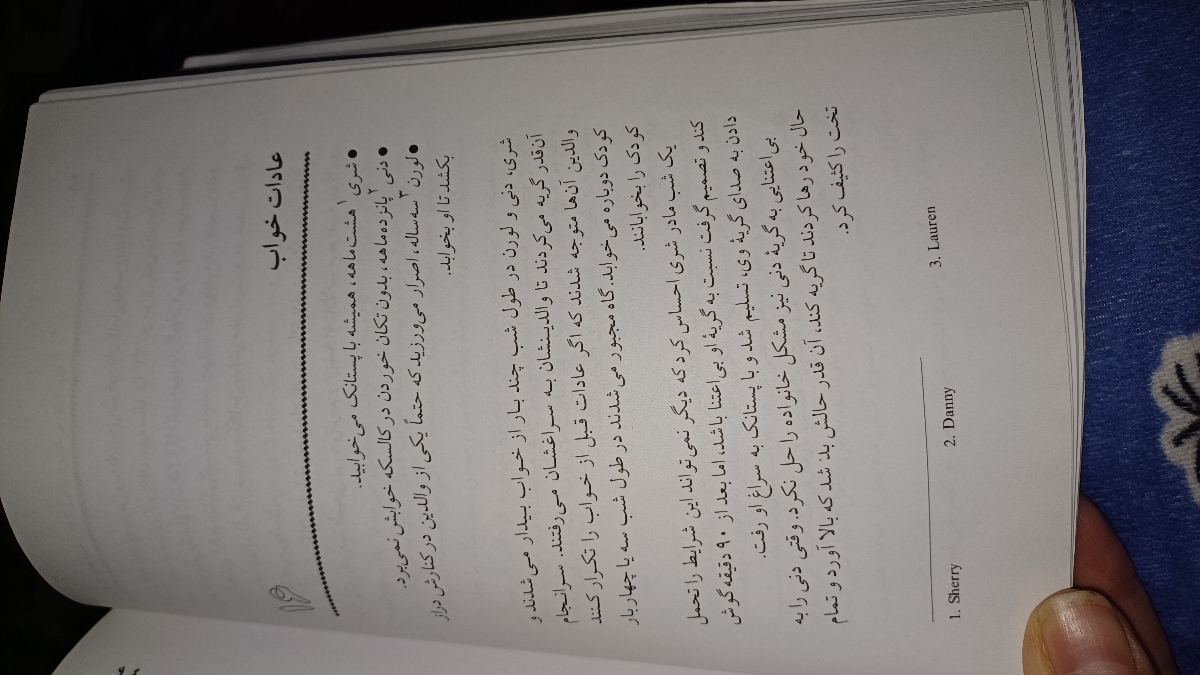 عادات خواب
● شری۱ هشت ماهه، همیشه با پستانک می‌خوابید.
● دنی۲ پانزده ماهه، بدون تکان خوردن در کالسکه خوابش نمی‌برد.
● لورن۳ سه ساله، اصرار می‌ورزید که حتماً یکی از والدین در کنارش دراز
بکشد تا او بخوابد.
شری، دنی و لورن در طول شب چند بار از خواب بیدار می‌شدند و
آن‌قدر گریه می‌کردند تا والدینشان به سراغشان می‌رفتند. سرانجام
والدین آن‌ها متوجه شدند که اگر عادات قبل از خواب را تکرار کنند
کودک دوباره می‌خوابد. گاه مجبور می‌شدند در طول شب سه یا چهار بار
کودک را بخوابانند.
یک شب مادر شری احساس کرد که دیگر نمی‌تواند این شرایط را تحمل
کند و تصمیم گرفت نسبت به گریهٔ او بی‌اعتنا باشد، اما بعد از ۹۰ دقیقه گوش
دادن به صدای گریهٔ وی، تسلیم شد و با پستانک به سراغ او رفت.
بی‌اعتنایی به گریهٔ دنی نیز مشکل خانواده را حل نکرد. وقتی دنی را به
حال خود رها کردند تا گریه کند، آن قدر حالش بد شد که بالا آورد و تمام
تخت را کثیف کرد.
1. Sherry 2. Danny 3. Lauren